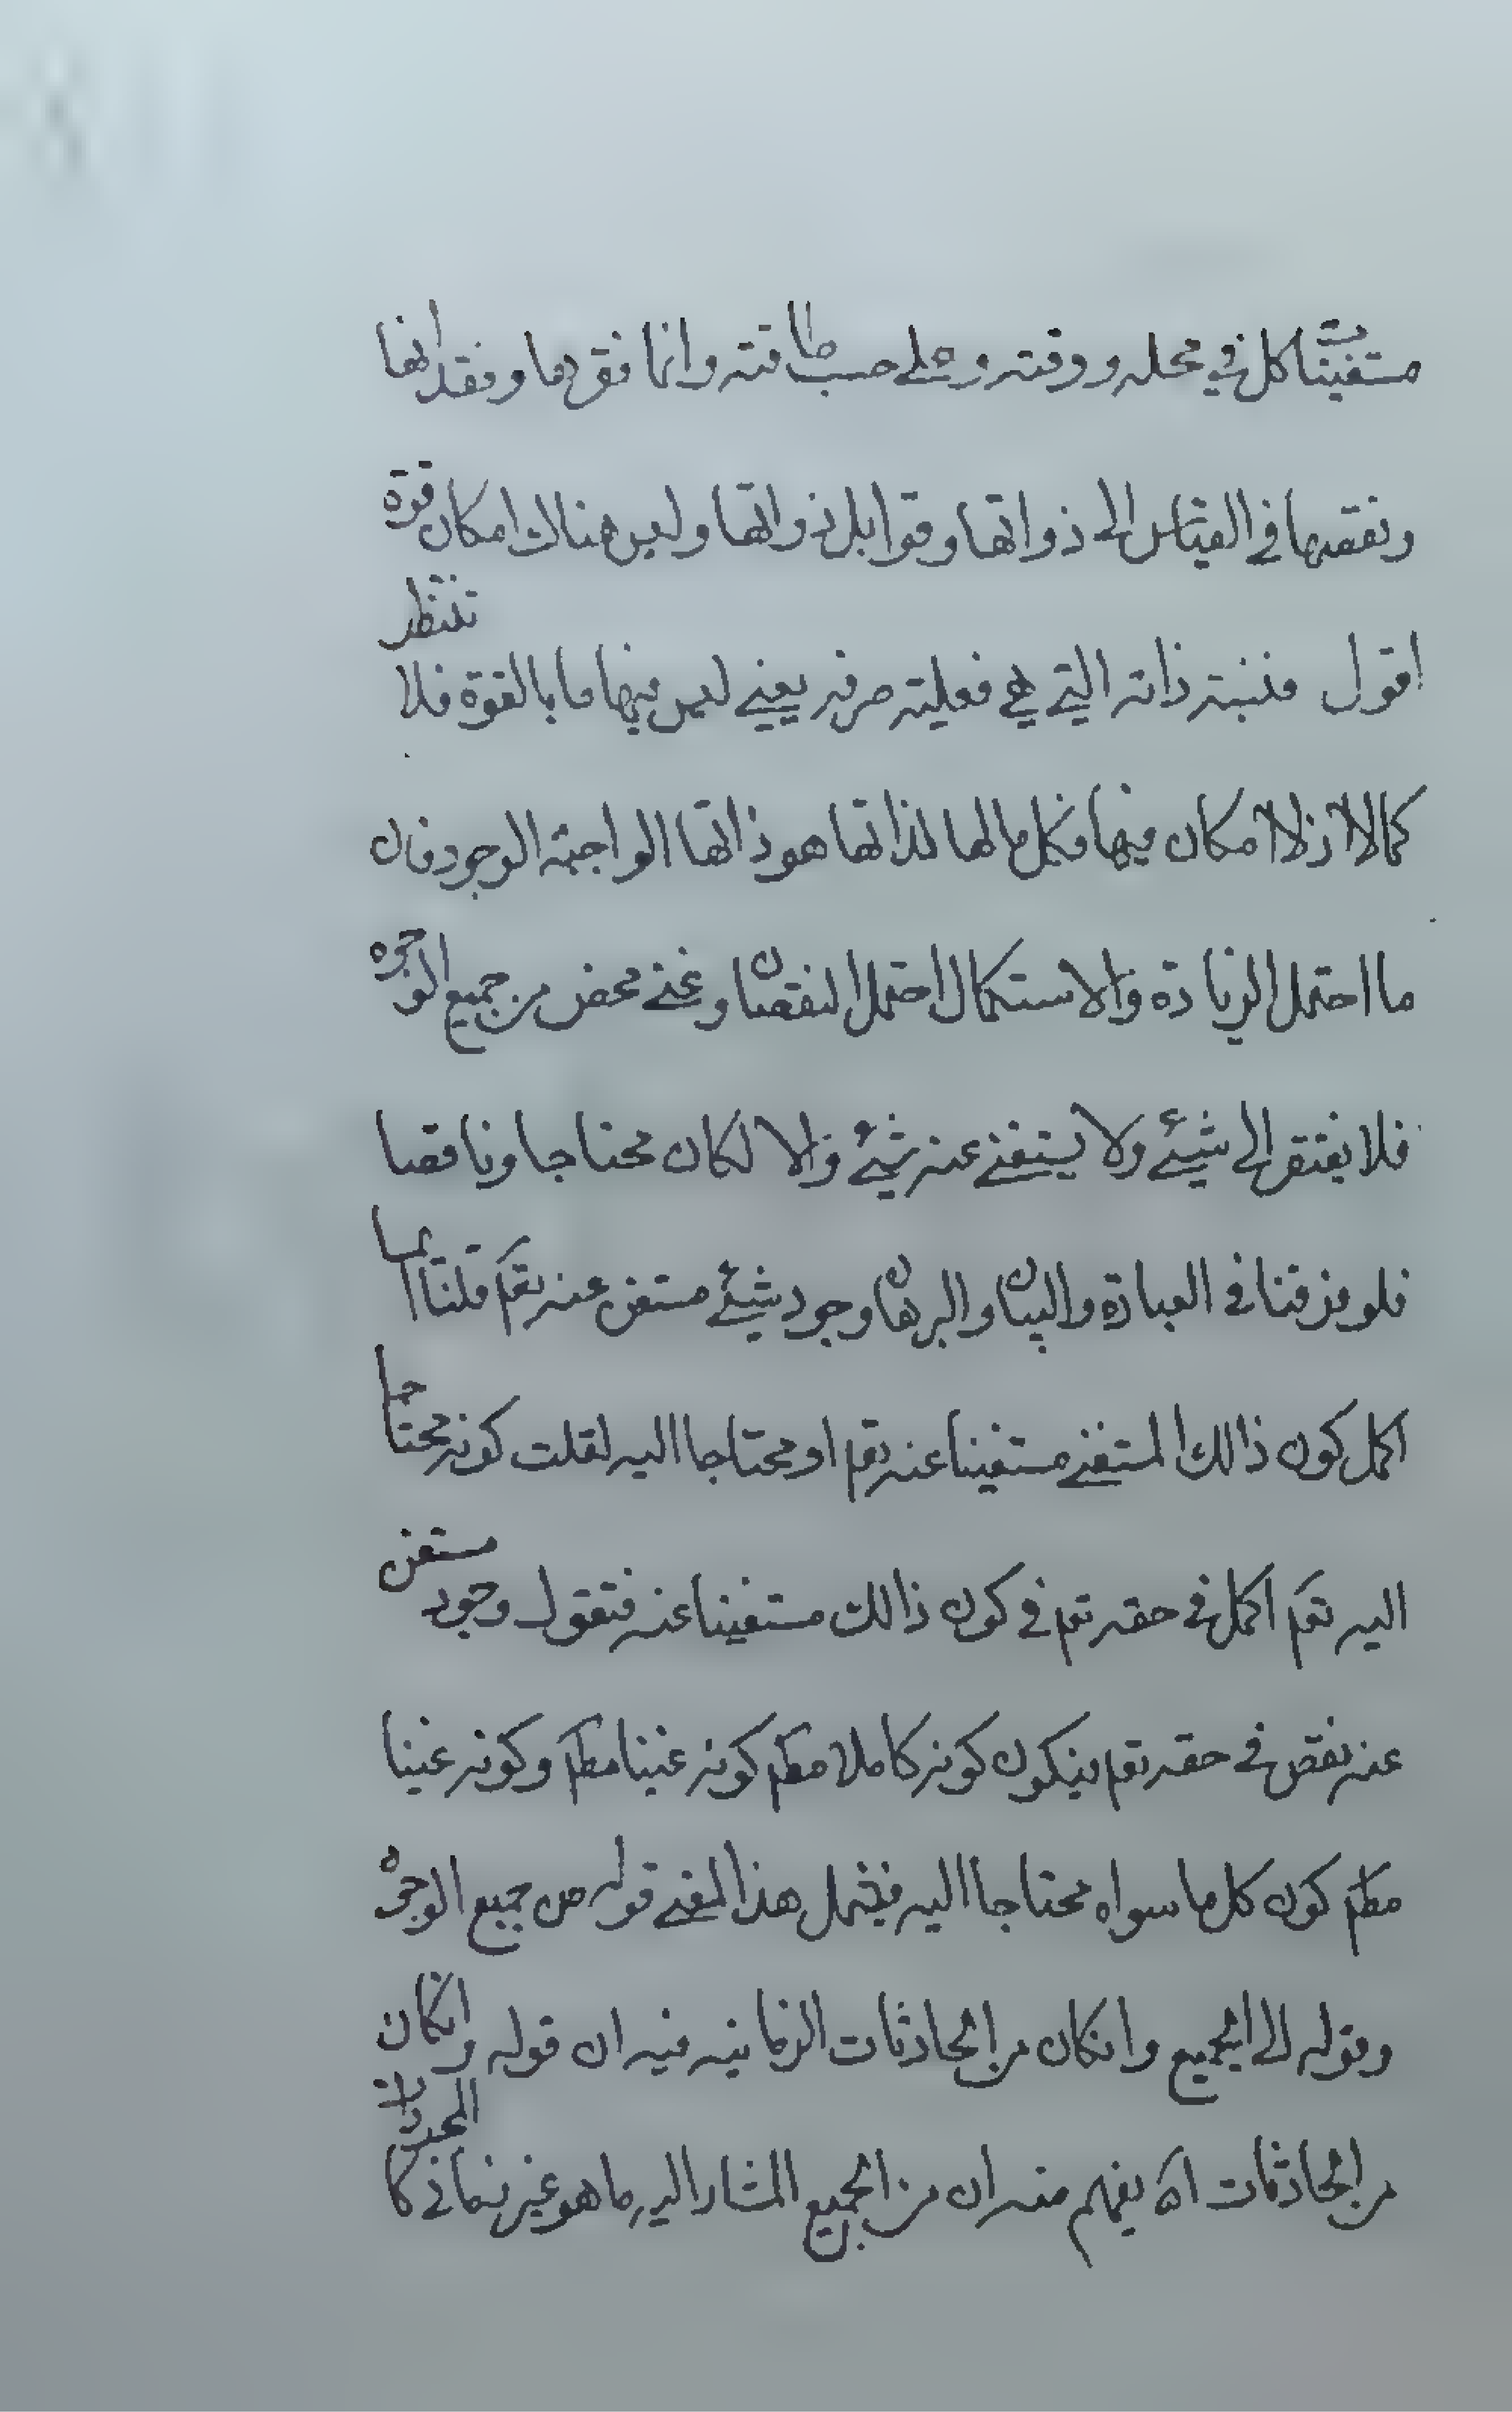 مستفيتا كل في محله ووقته وعلے حسب طاقته وانما فقرها وفقدانها
ونقصها في القياس الى ذواتها وقوابل ذواتها وليس هناك امكان قوة
اقول فنسبته ذاته التي هي فعليته صرفه يعني ليس فيها ما بالقوة فلا تنتظر
كمالا اذ لا امكان فيها فكل ما لها لذاتها هو ذاتها الواجبة الوجود فان
ما احتمل الزيادة والاستكمال احتمل النقصان وغني محض من جميع الوجوه
فلا يفتقر الى شيئ ولا يستغني عنه شيئ والا لكان محتاجا وناقصا
فلو فرقنا في العبادة والبيان والبرهان وجود شيئ مستغن عنه تعم قلنا ايما
اكمل كون ذالك المستغني مستغينا عنه تعم او محتاجا اليه لقلت كونه محتاجا
اليه تعم اكمل في حقه تعم في كون ذالك مستغينا عنه فتقول وجود مستغن
عنه نقص في حقه تعم فيكون كونه كاملا مطم كونه غنيا مطم وكونه غنيا
مطم كون كل ما سواه محتاجا اليه فيشمل هذا المعنى قوله من جميع الوجوه
وقوله الى الجميع وانكان من الحادثات الزمانيه فيه ان قوله وانكان
من الحادثات اه يفهم منه ان من الجميع المشار اليه ما هو غير زماني كالمجردات